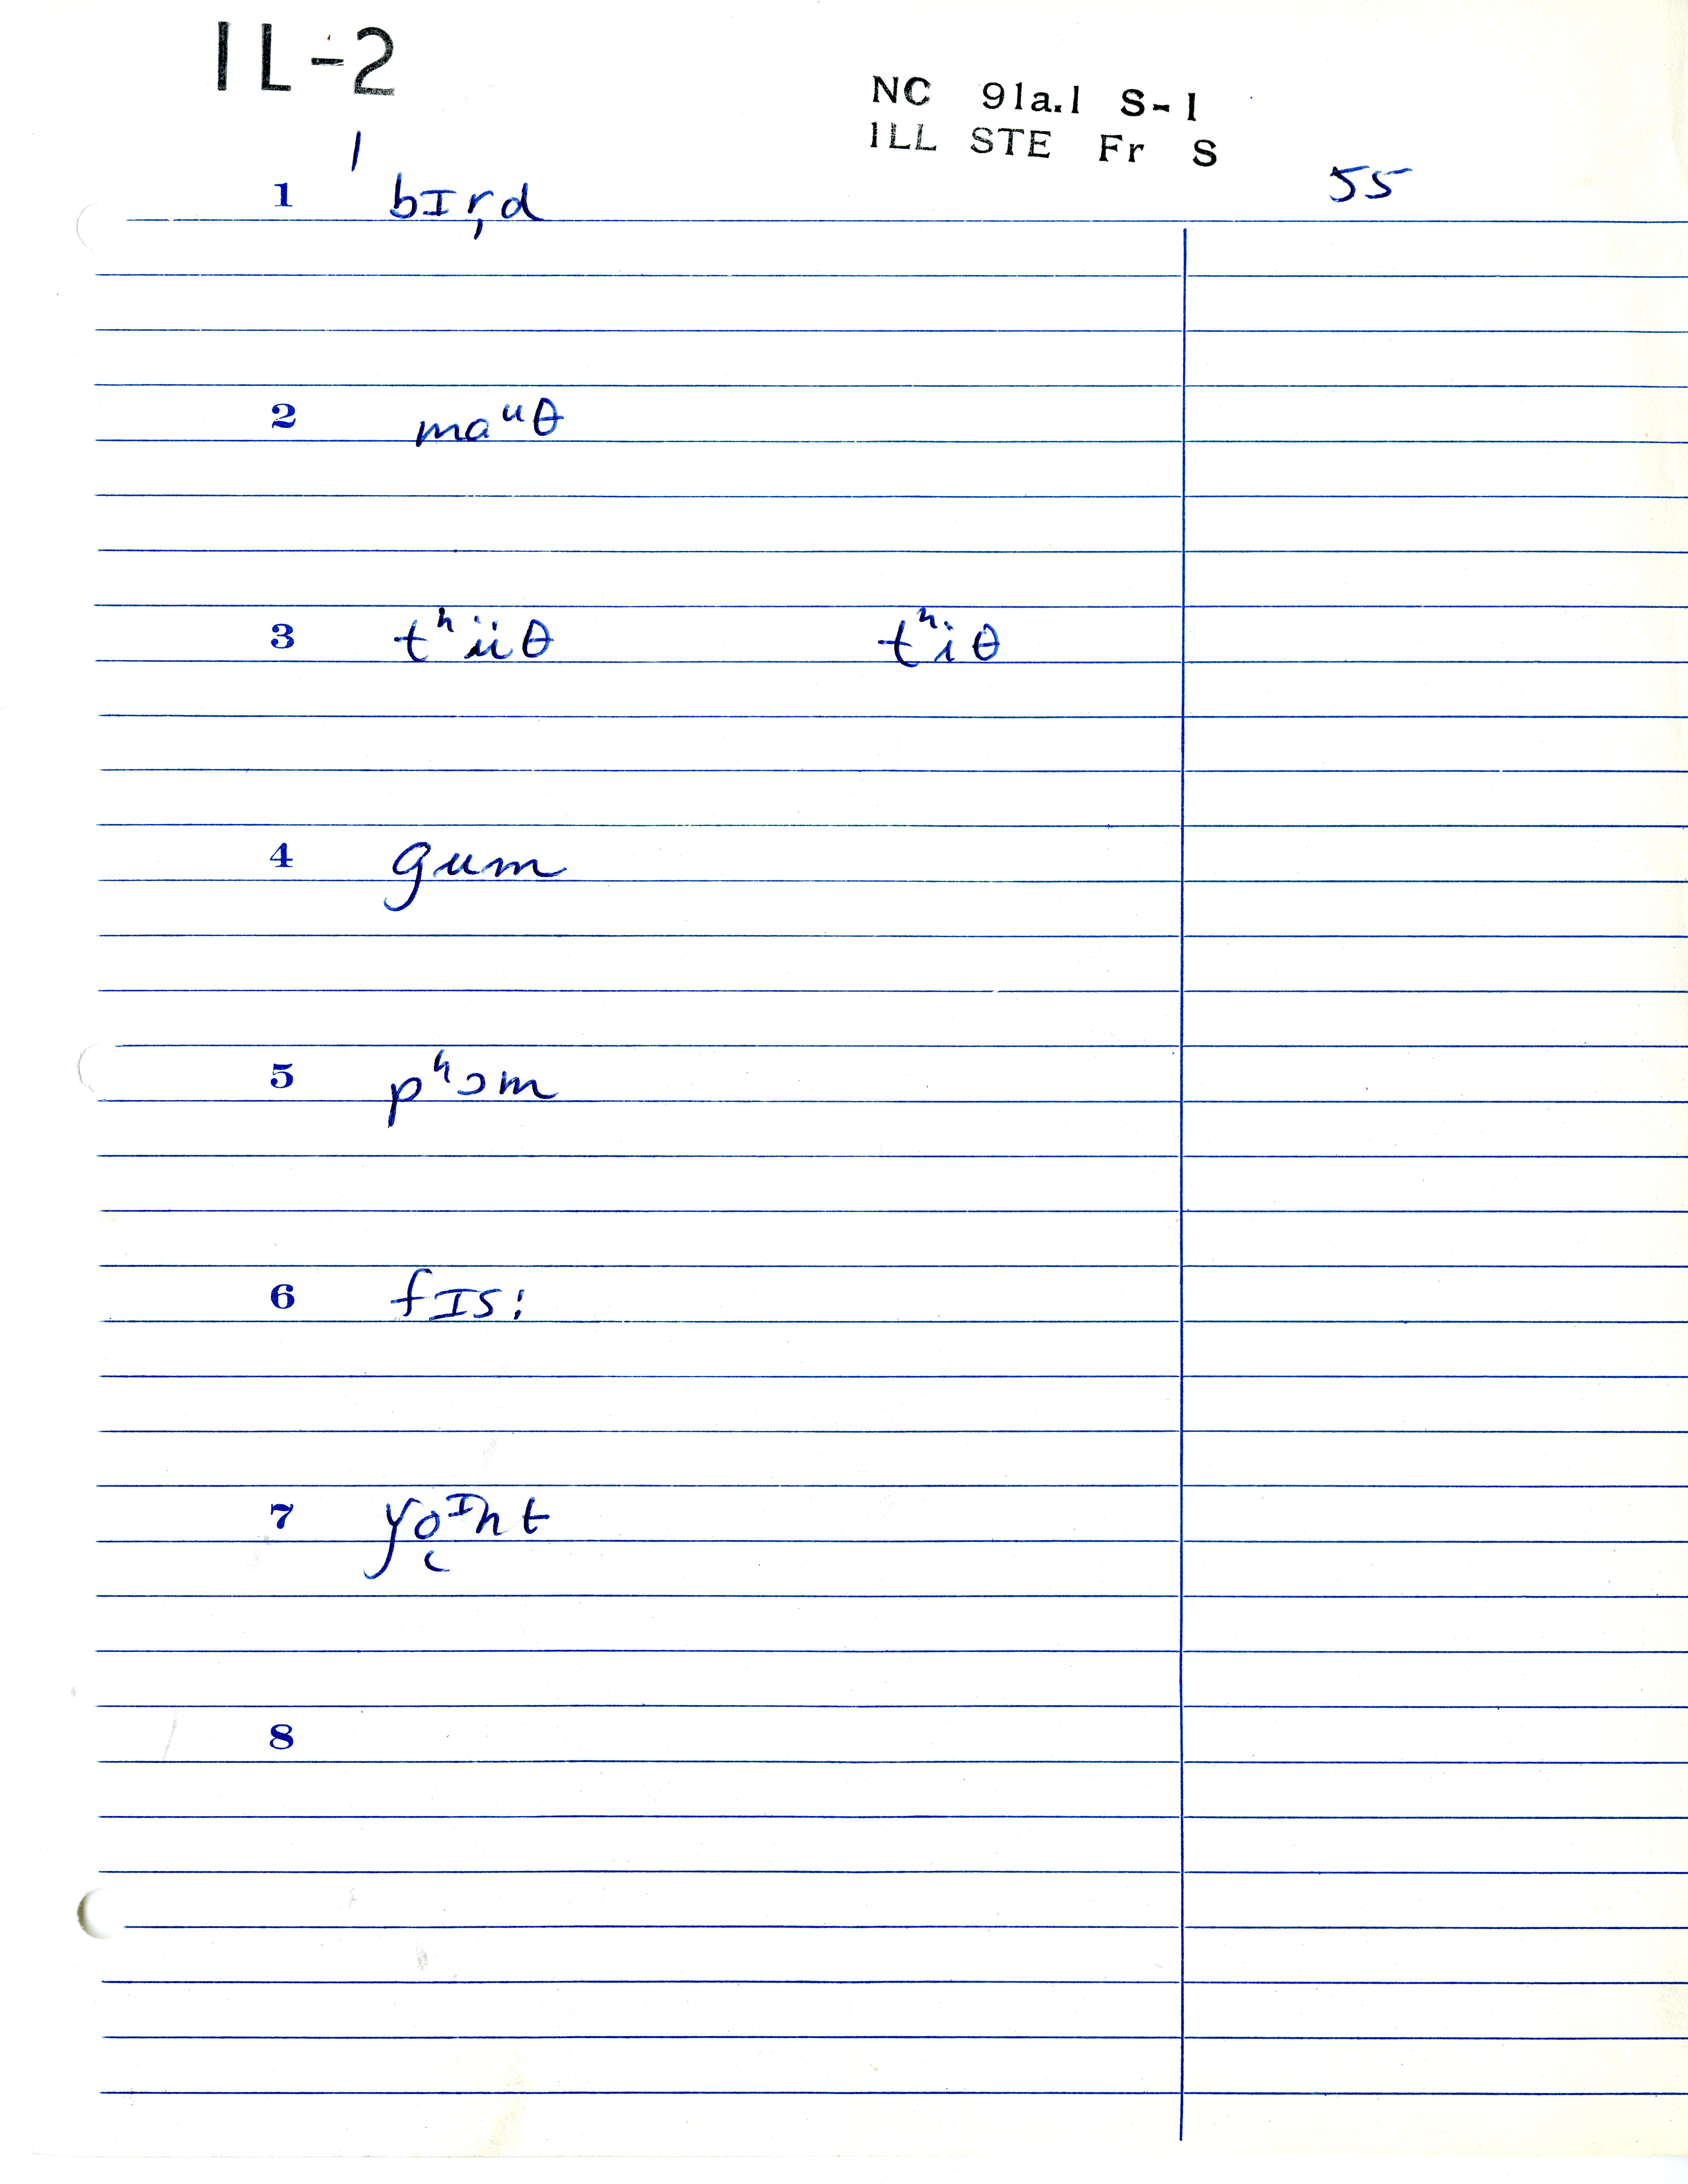 IL-2
NC 91a.1 S-1
ILL STE Fr S
55
1
1 bɪr̩d
2 maᵘθ
3 tʰiiθ tʰiθ
4 gum
5 pʰɔm
6 fɪs:
7 yo̜ᴵnt
8